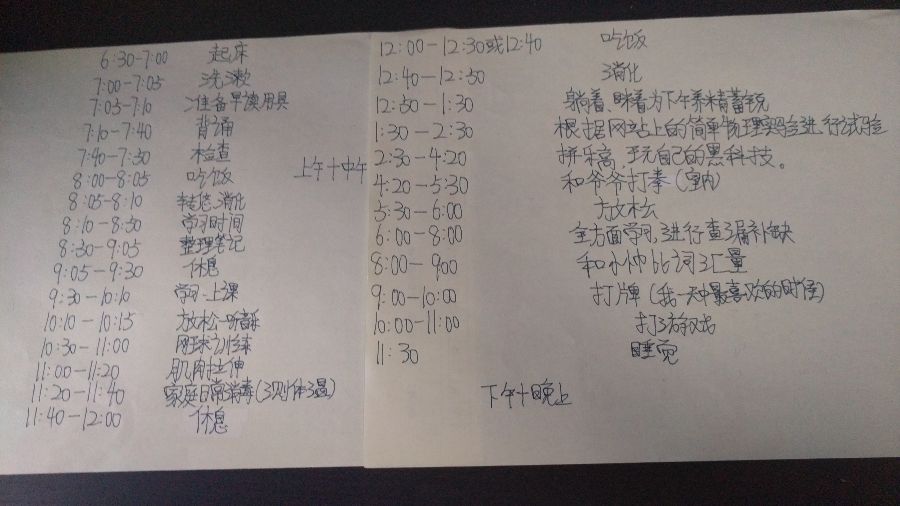 6:30-7:00 起床
7:00-7:05 洗漱
7:05-7:10 准备早读用具
7:10-7:40 背诵
7:40-7:50 检查
上午+中午
8:00-8:05 吃饭
8:05-8:10 转悠.消化
8:10-8:50 学习时间
8:50-9:05 整理笔记
9:05-9:30 休息
9:30-10:10 学习.上课
10:10-10:15 放松.听音乐
10:30-11:00 网球训练
11:00-11:20 肌肉拉伸
11:20-11:40 家庭日常消毒(测体温)
11:40-12:00 休息
12:00-12:30或12:40 吃饭
12:40-12:50 消化
12:50-1:30 躺着、眯着为下午养精蓄锐
1:30-2:30 根据网站上的简单物理实验进行试验
2:30-4:20 拼乐高,玩自己的黑科技。
4:20-5:30 和爷爷打拳(室内)
5:30-6:00 放松
6:00-8:00 全方面学习,进行查漏补缺
8:00-9:00 和小帅比词汇量
9:00-10:00 打牌(我一天中最喜欢的时候)
10:00-11:00 打游戏
11:30 睡觉
下午+晚上